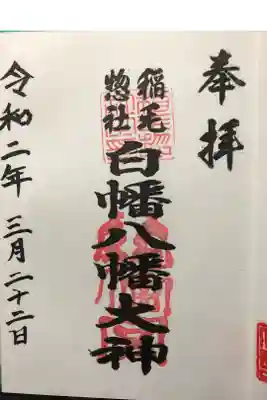 奉拝
稲毛
惣社
白幡八幡大神
令和二年 三月二十二日